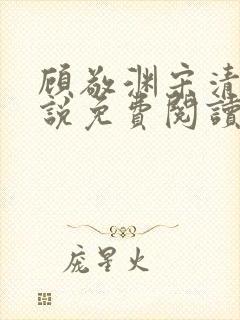 顾敬渊宋清
說免費閱讀
庞星火